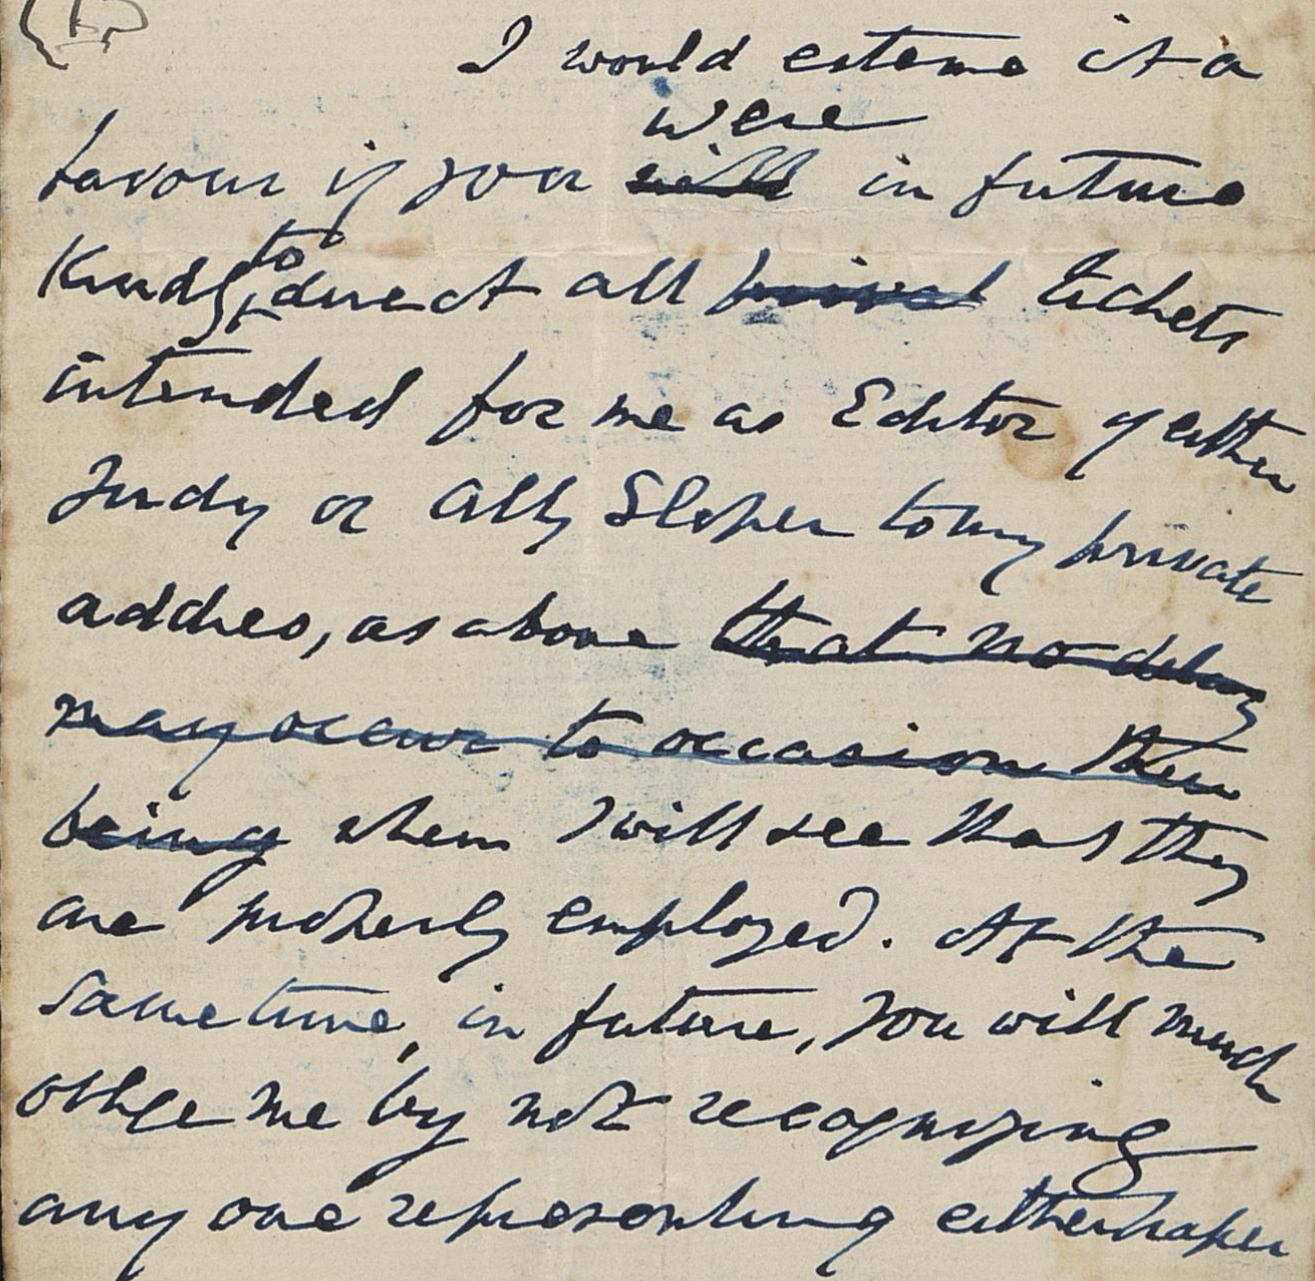 I would esteme it a
were
favour if you will in future
to
Kindly direct all privat tickets
intended for me as Editor of either
Judy or Ally Sloper to my private
address, as above that no delay
may occur to occasion their
being when I will see that they
are properly employed. At the
same time, in future, you will much
oblige me by not recognizing
any one representing either paper